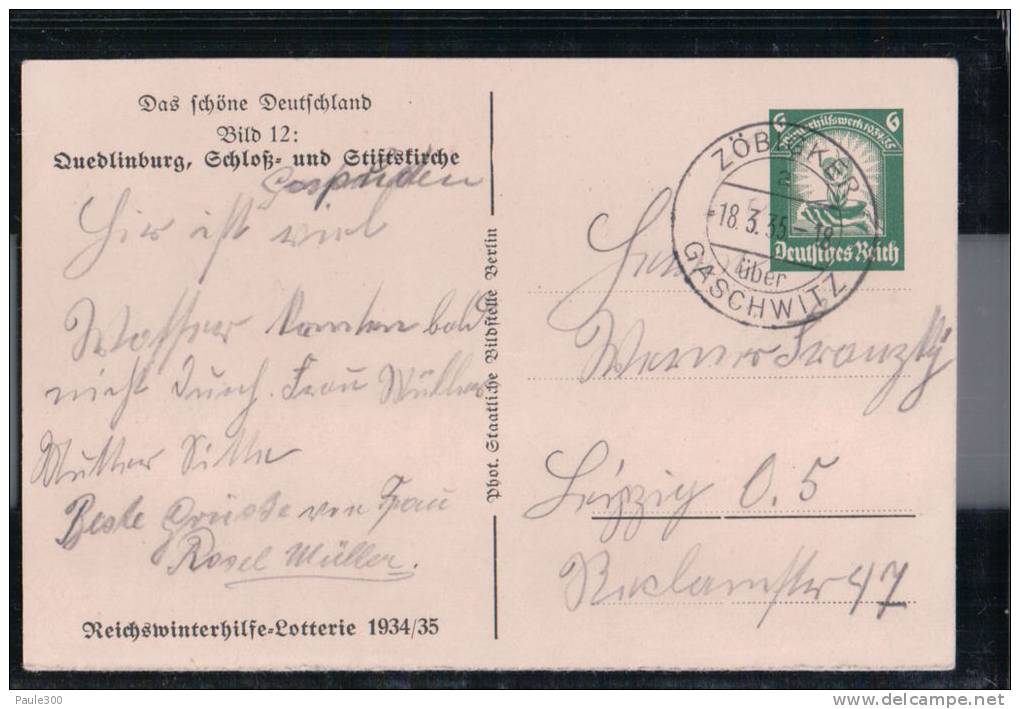 Das schöne Deutschland
Bild 12:
Quedlinburg, Schloß- und Stiftskirche
Hier ist viel
Wasser konnten bald
nicht durch. Frau Müller
Mutter
Beste Grüsse von Frau
Rosel Müller.
Reichswinterhilfe-Lotterie 1934/35
Phot. Staatliche Bildstelle Berlin
6 6
Winterhilfswerk 1934/35
Deutsches Reich
ZÖBIGKER
a
18.3.35.-18
über
GASCHWITZ
Werner
Leipzig O. 5
Reclamstr 47
Paule300
www.delcampe.net